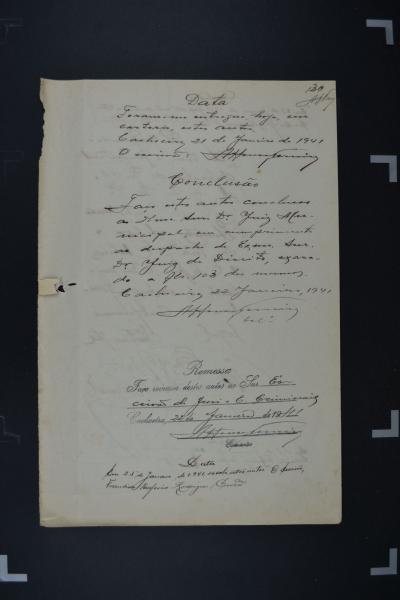 130
Data
Foram-me entregues hoje, em
cartorio, estes autos
Cachoeira, 21 de Janeiro de 1941
O escrivão:
Conclusão
Faço estes autos conclusos
ao Ilmo. Snr. Dr. Juiz Mu-
nicipal, em cumprimento
ao despacho do Exmo. Snr.
Dr. Juiz de Direito, exara-
do a fls. 103 dos mesmos.
Cachoeira, 22 Janeiro, 1941
Remessa
Faço remessa destes autos ao Snr. Es-
crivão do Juri e C. Criminais
Cachoeira, de Janeiro de 1941
Data
Em 25 de Janeiro de 1941 recebi estes autos O Escrivão,
Francisco